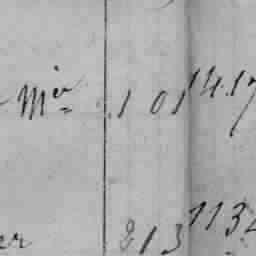 Mer 1 01 14.17
er 213 113